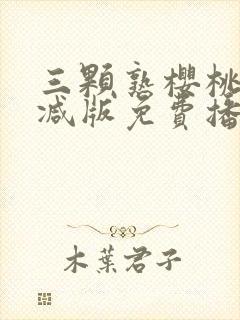 三顆熟櫻桃
減版免費播
木葉君子